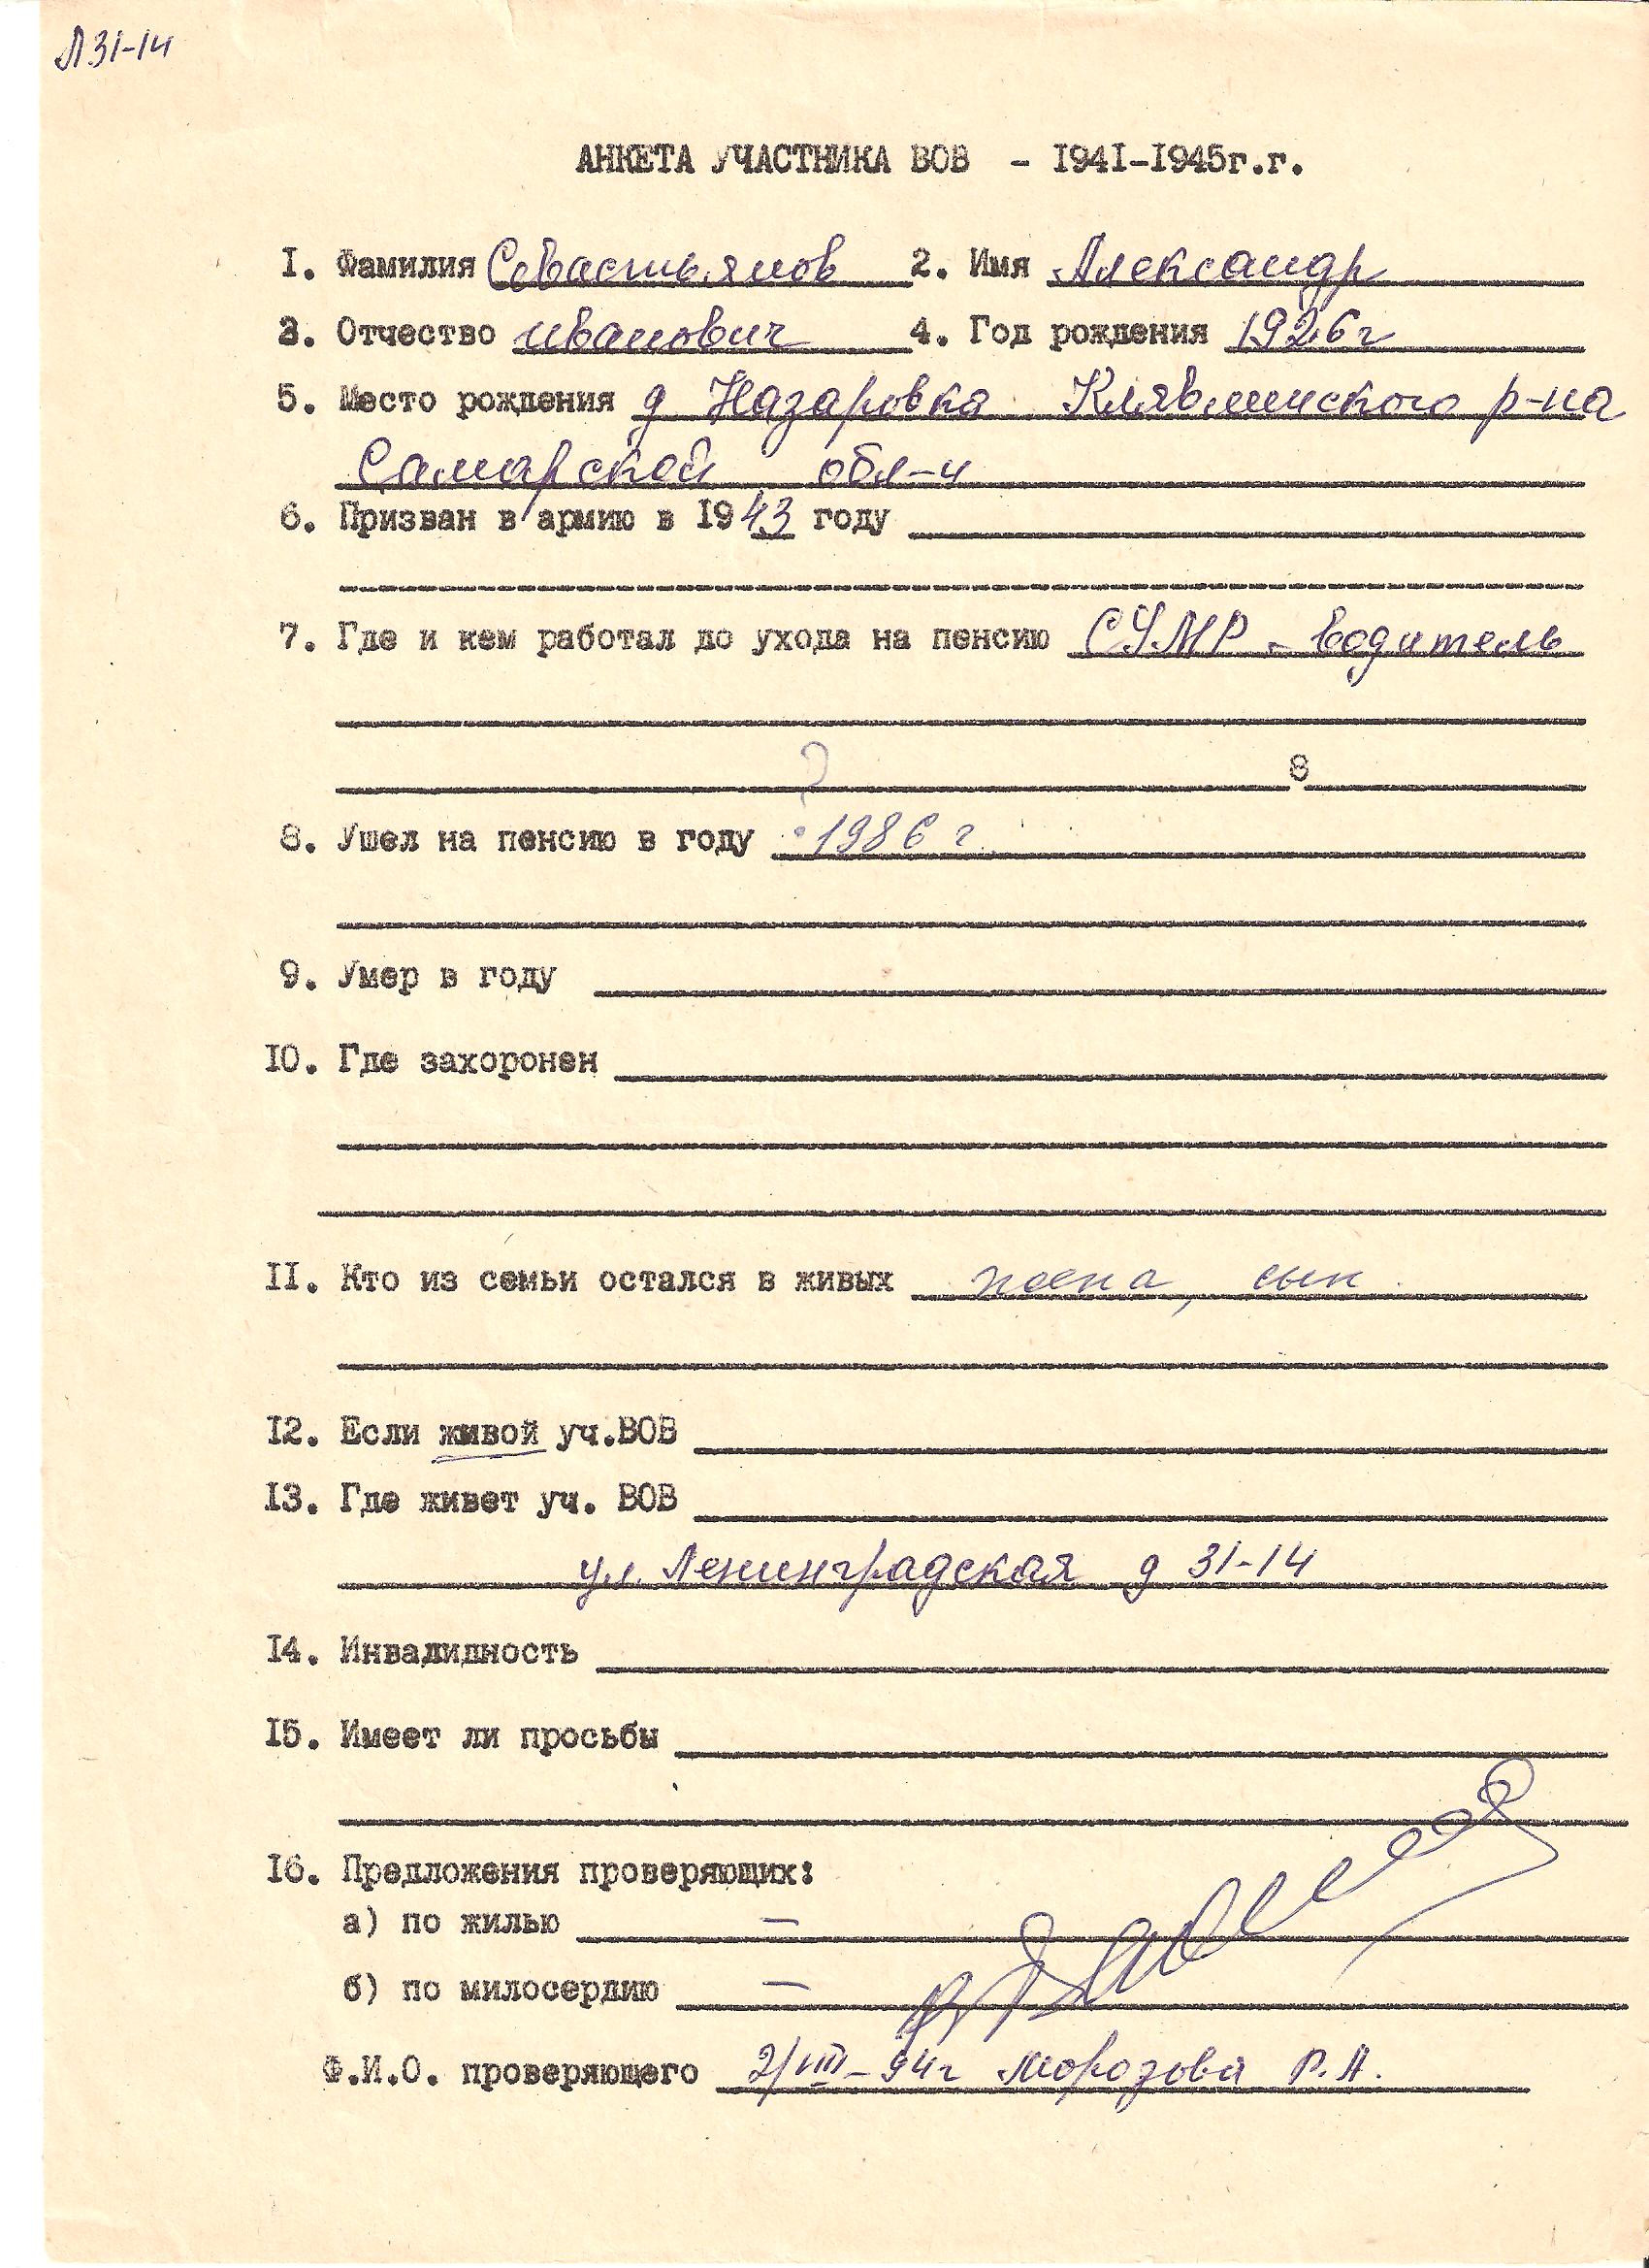 Л31-14
АНКЕТА УЧАСТНИКА ВОВ - I94I-I945г.г.
I. Фамилия Севастьянов 2. Имя Александр
3. Отчество иванович 4. Год рождения 1926г
5. Место рождения д Назаровка Клявлинского р-на
Самарской обл-и
6. Призван в армию в I943 году
7. Где и кем работал до ухода на пенсию СУМР - водитель
? 8
8. Ушел на пенсию в году 1986 г.
9. Умер в году
IO. Где захоронен
II. Кто из семьи остался в живых жена, сын.
I2. Если живой уч.ВОВ
I3. Где живет уч. ВОВ
ул. Ленинградская д 31-14
I4. Инвалидность
I5. Имеет ли просьбы
I6. Предложения проверяющих:
а) по жилью —
б) по милосердию —
Ф.И.О. проверяющего 2/VIII-94г Морозова Р.А.